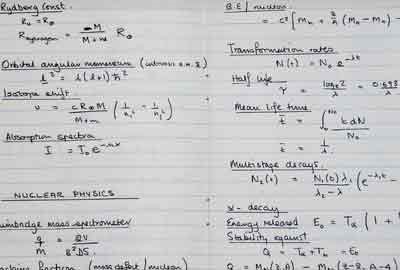 Rydberg Const.
R₀ = R∞
R_hydrogen = M / (M + m) R∞
Orbital angular momentum
l² = l(l+1) ħ²
Isotope shift.
ν = c R∞ M / (M + m) (1/n₁² − 1/n₂²)
Absorption spectra
I = I₀ e
NUCLEAR PHYSICS
mass spectrometer
q/m = 2V
fraction (mass defect / nucleon)
B.E / nucleon
= c² [ M_n + (M_H − M_n) −
Transformation rates
N(t) = N₀ e^(−λt)
Half life
τ = log_e 2 / λ = 0.693
Mean life time
t̄ = ∫₀^N₀ t dN / N₀
t̄ = 1/λ
Multistage decays.
N₂(t) = N₁(0) λ₁ / (λ₂ − λ₁) (e^(−λ₁t −
α - decay
Energy released E₀ = Tα (1 +
Stability against
Q = Tα + T_b = E₀